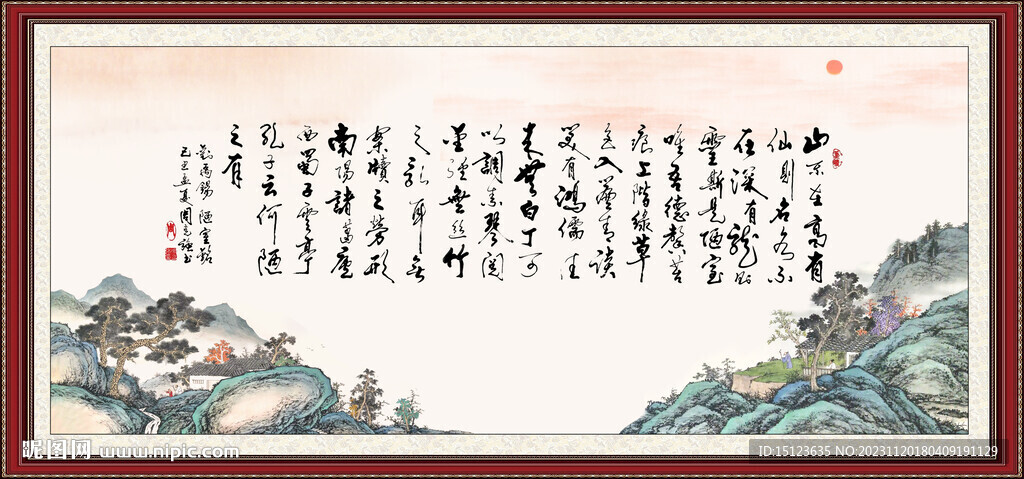 山不在高有
仙則名水不
在深有龍則
靈斯是陋室
唯吾德馨苔
痕上階緑草
色入簾青談
笑有鴻儒往
来無白丁可
以調素琴閱
金經無絲竹
之亂耳無
案牘之勞形
南陽諸葛廬
西蜀子雲亭
孔子云何陋
之有
劉禹錫 陋室銘
己丑孟夏周 书
昵图网 www.nipic.com
ID:15123635 NO:20231120180409191129